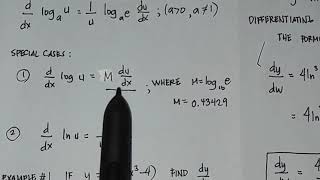 d/dx log_a u = 1/u log_a e du/dx ; (a>0, a≠1)
SPECIAL CASES :
① d/dx log u = M du/dx ; WHERE M = log₁₀e
M = 0.43429
② d/dx ln u =
EXAMPLE #1 IF y = -4) FIND dy/
DIFFERENTIATING
THE FORM
dy/dw = 4ln³
dy/dx = 4ln³